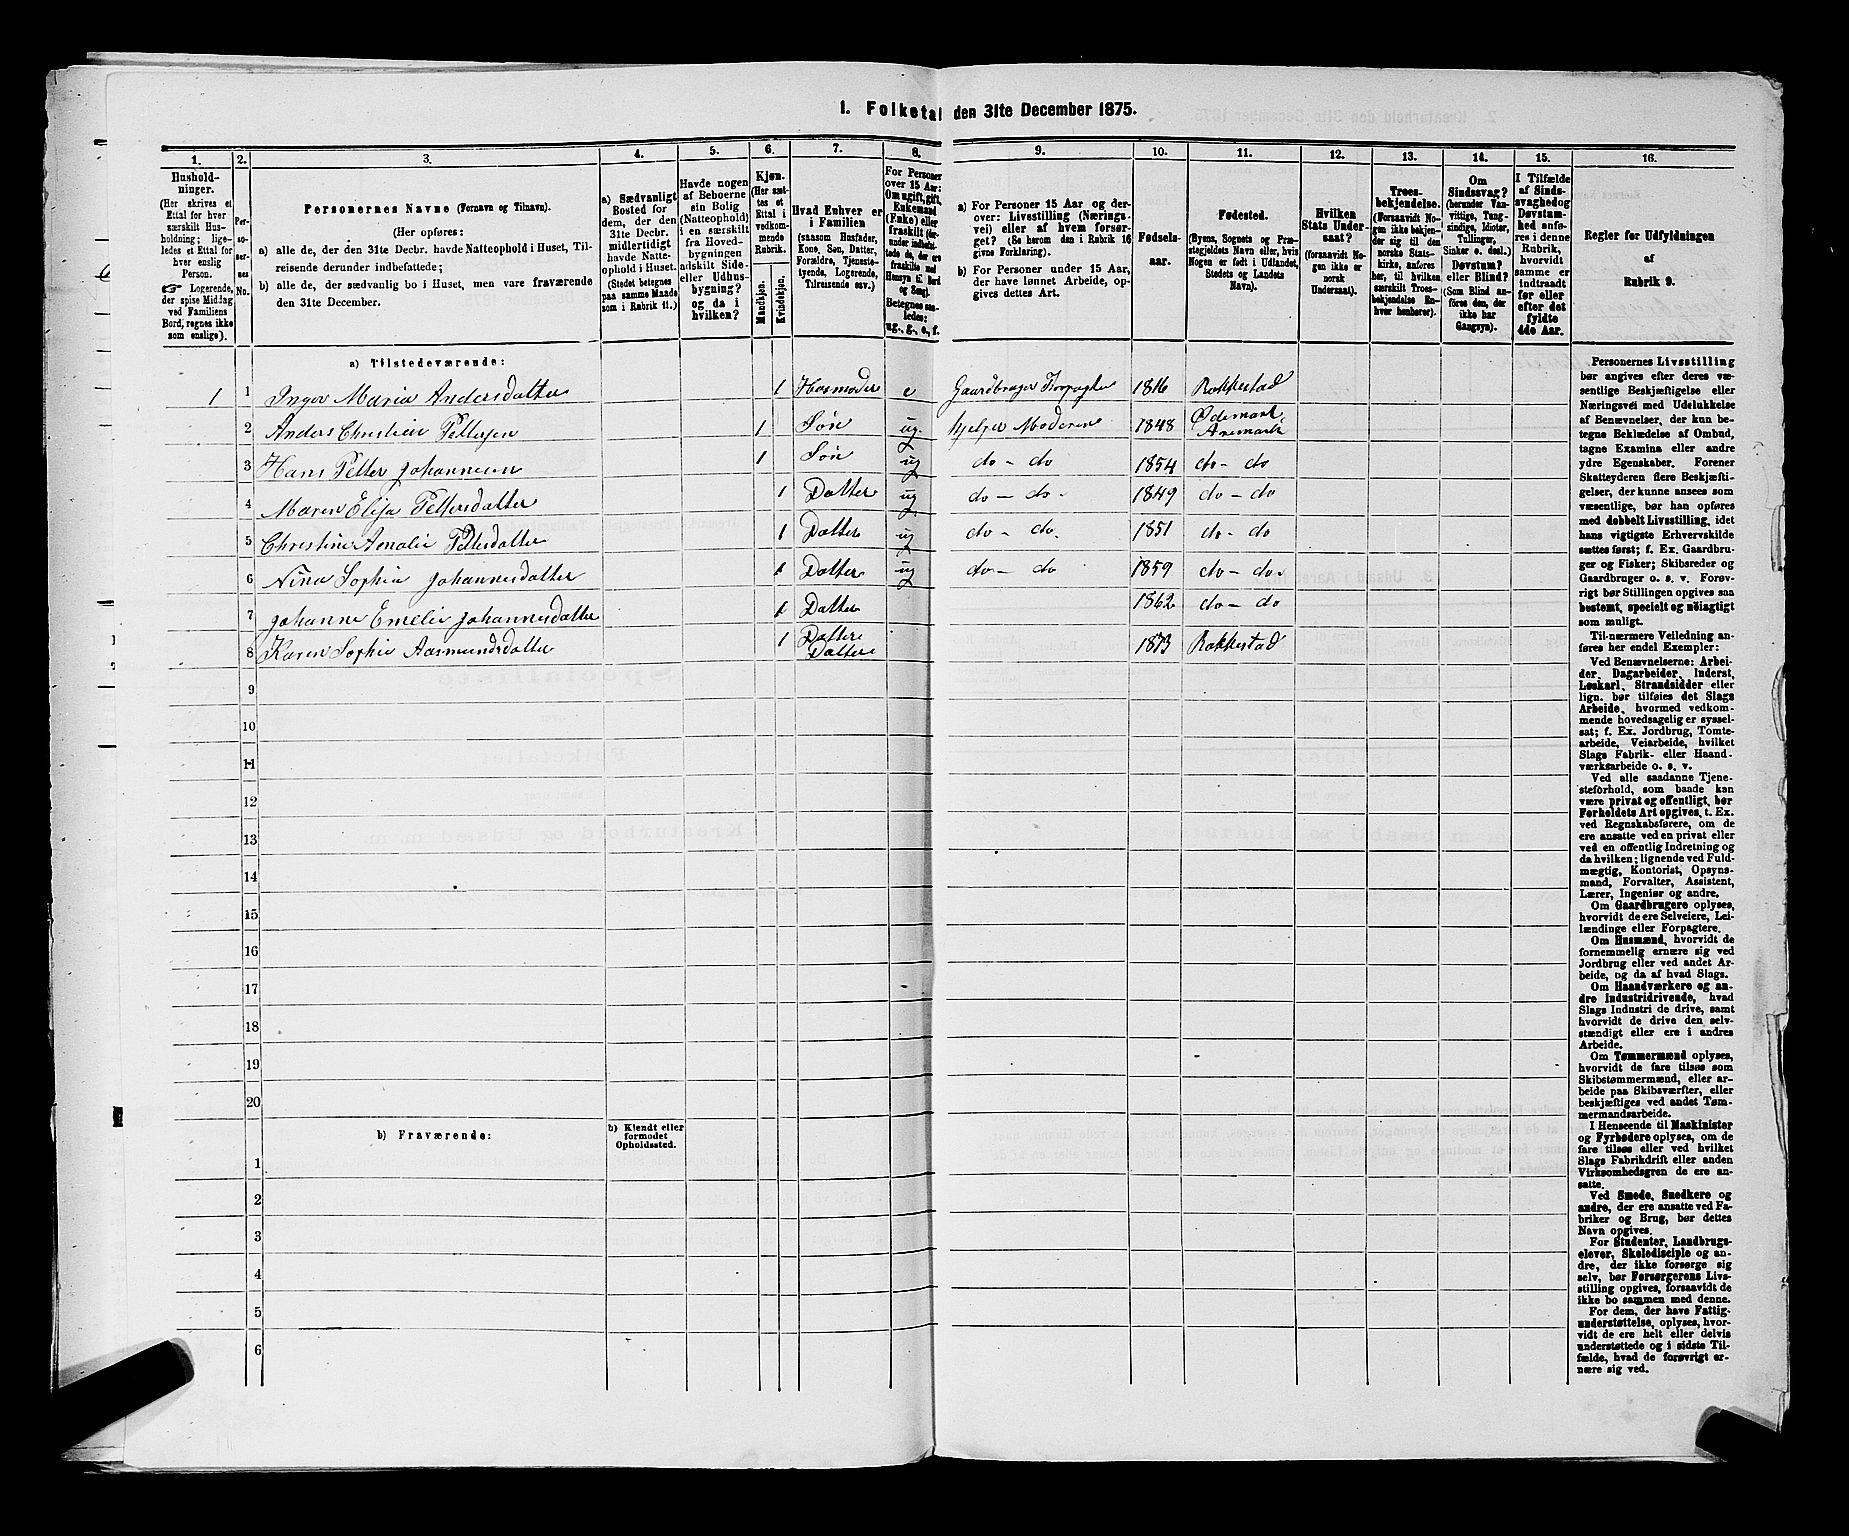 1. Folketal den 31te December 1875.
1. 2. 3. 4. 5. 6. 7. 8. 9. 10. 11. 12. 13. 14. 15. 16.
Hushold-
ninger.
(Her skrives et
Ettal for hver
særskilt Hus-
holdning; lige-
ledes et Ettal
for hver enslig
Person.
☞ Logerende,
der spise Middag
ved Familiens
Bord, regnes ikke
som enslige).
Per-
so-
ner-
nes
No.
Personernes Navne (Fornavn og Tilnavn).
(Her opføres:
a) alle de, der den 31te Decbr. havde Natteophold i Huset, Til-
reisende derunder indbefattede;
b) alle de, der sædvanlig bo i Huset, men vare fraværende
den 31te December.
a) Sædvanligt
Bosted for
dem, der den
31te Decbr.
midlertidigt
havde Natte-
ophold i Huset.
(Stedet betegnes
paa samme Maade
som i Rubrik 11.)
Havde nogen
af Beboerne
sin Bolig
(Natteophold)
i en særskilt
fra Hoved-
bygningen
adskilt Side-
eller Udhus-
bygning?
og da i
hvilken?
Kjøn.
(Her sæt-
tes et
Ettal i
vedkom-
mende
Rubrik.
Mandkjøn.
Kvindekjøn.
Hvad Enhver er
i Familien
(saasom Husfader,
Kone, Søn, Datter,
Forældre, Tjeneste-
tyende, Logerende,
Tilreisende osv.)
For Personer
over 15 Aar:
Om ugift, gift,
Enkemand
(Enke) eller
fraskilt (der-
under indbefat-
tede de, der ere
fraskilte med
Hensyn til Bord
og Seng).
Betegnes saa-
ledes:
ug., g., e., f.
a) For Personer 15 Aar og der-
over: Livsstilling (Nærings-
vei) eller af hvem forsør-
get? (Se herom den i Rubrik 16
givne Forklaring).
b) For Personer under 15 Aar,
der have lønnet Arbeide, op-
gives dettes Art.
Fødsels-
aar.
Fødested.
(Byens, Sognets og Præ-
stegjeldets Navn eller, hvis
Nogen er født i Udlandet,
Stedets og Landets
Navn).
Hvilken
Stats Under-
saat?
(forsaavidt No-
gen ikke er
norsk
Undersaat).
Troes-
bekjendelse.
(Forsaavidt No-
gen ikke bekjen-
der sig til den
norske Stats-
kirke, anføres
her, til hvilken
særskilt Troes-
bekjendelse En-
hver henhører).
Om
Sindssvag?
(herunder Van-
vittige, Tung-
sindige, Idioter,
Tullinger,
Sinker o. desl.)
Døvstum?
eller Blind?
(Som Blind an-
føres den, der
ikke har
Gangsyn).
I Tilfælde
af Sinds-
svaghed og
Døvstum-
hed anfø-
res i denne
Rubrik,
hvorvidt
samme er
indtraadt
før eller
efter det
fyldte
4de Aar.
Regler for Udfyldningen
af
Rubrik 9.
a) Tilstedeværende:
1 1 Inger Maria Andersdatter 1 Husmoder e Gaardbruger Forpagter 1816 Rakkestad
2 Anders Christian Pettersen 1 Søn ug. hjelper Moderen 1848 Ødemark Aremark
3 Hans Petter Johannesen 1 Søn ug do - do 1854 do - do
4 Maren Elisa Pettersdatter 1 Datter ug do - do. 1849 do - do
5 Christine Amalie Pettersdatter 1 Datter ug do - do. 1851 do - do
6 Nina Sophia Johannesdatter 1 Datter ug do - do 1859 do - do.
7 Johanne Emelie Johannesdatter 1 Datter 1862 do - do
8 Karen Sophie Aasmundsdatter 1 Datters Datter 1873 Rakkestad
9
10
11
12
13
14
15
16
17
18
19
20
b) Fraværende:
b) Kjendt eller
formodet
Opholdssted.
1
2
3
4
5
6
Personernes Livsstilling
bør angives efter deres væ-
sentlige Beskjæftigelse eller
Næringsvei med Udelukkelse
af Benævnelser, der kun be-
tegne Beklædelse af Ombud,
tagne Examina eller andre
ydre Egenskaber. Forener
Skatteyderen flere Beskjæfti-
gelser, der kunne ansees som
væsentlige, bør han opføres
med dobbelt Livsstilling, idet
hans vigtigste Erhvervskilde
sættes først; f. Ex. Gaardbru-
ger og Fisker; Skibsreder og
Gaardbruger o. s. v. Forøv-
rigt bør Stillingen opgives saa
bestemt, specielt og nøiagtigt
som muligt.
Til nærmere Veiledning an-
føres her endel Exempler:
Ved Benævnelserne: Arbei-
der, Dagarbeider, Inderst,
Løskarl, Strandsidder eller
lign. bør tilføies det Slags
Arbeide, hvormed vedkom-
mende hovedsagelig er syssel-
sat; f. Ex. Jordbrug, Tomte-
arbeide, Veiarbeide, hvilket
Slags Fabrik- eller Haand-
værksarbeide o. s. v.
Ved alle saadanne Tjene-
steforhold, som baade kan
være privat og offentligt, bør
Forholdets Art opgives, t. Ex.
ved Regnskabsførere, om de
ere ansatte ved en privat eller
ved en offentlig Indretning og
da hvilken; lignende ved Fuld-
mægtig, Kontorist, Opsyns-
mand, Forvalter, Assistent,
Lærer, Ingeniør og andre.
Om Gaardbrugere oplyses,
hvorvidt de ere Selveiere, Lei-
lændinge eller Forpagtere.
Om Husmænd, hvorvidt de
fornemmelig ernære sig ved
Jordbrug eller ved andet Ar-
beide, og da af hvad Slags.
Om Haandværkere og an-
dre Industridrivende, hvad
Slags Industri de drive, samt
hvorvidt de drive den selv-
stændigt eller ere i andres
Arbeide.
Om Tømmermænd oplyses,
hvorvidt de fare tilsøs som
Skibstømmermænd, eller ar-
beide paa Skibsværfter, eller
beskjæftiges ved andet Tøm-
mermandsarbeide.
I Henseende til Maskinister
og Fyrbødere oplyses, om de
fare tilsøs eller ved hvilket
Slags Fabrikdrift eller anden
Virksomhedsgren de ere an-
satte.
Ved Smede, Snedkere og
andre, der ere ansatte ved Fa-
briker og Brug, bør dettes
Navn opgives.
For Studenter, Landbrugs-
elever, Skoledisciple og an-
dre, der ikke forsørge sig
selv, bør Forsørgerens Livs-
stilling opgives, forsaavidt de
ikke bo sammen med denne.
For dem, der have Fattig-
understøttelse, oplyses, hvor-
vidt de ere helt eller delvis
understøttede og i sidste Til-
fælde, hvad de forøvrigt er-
nære sig ved.